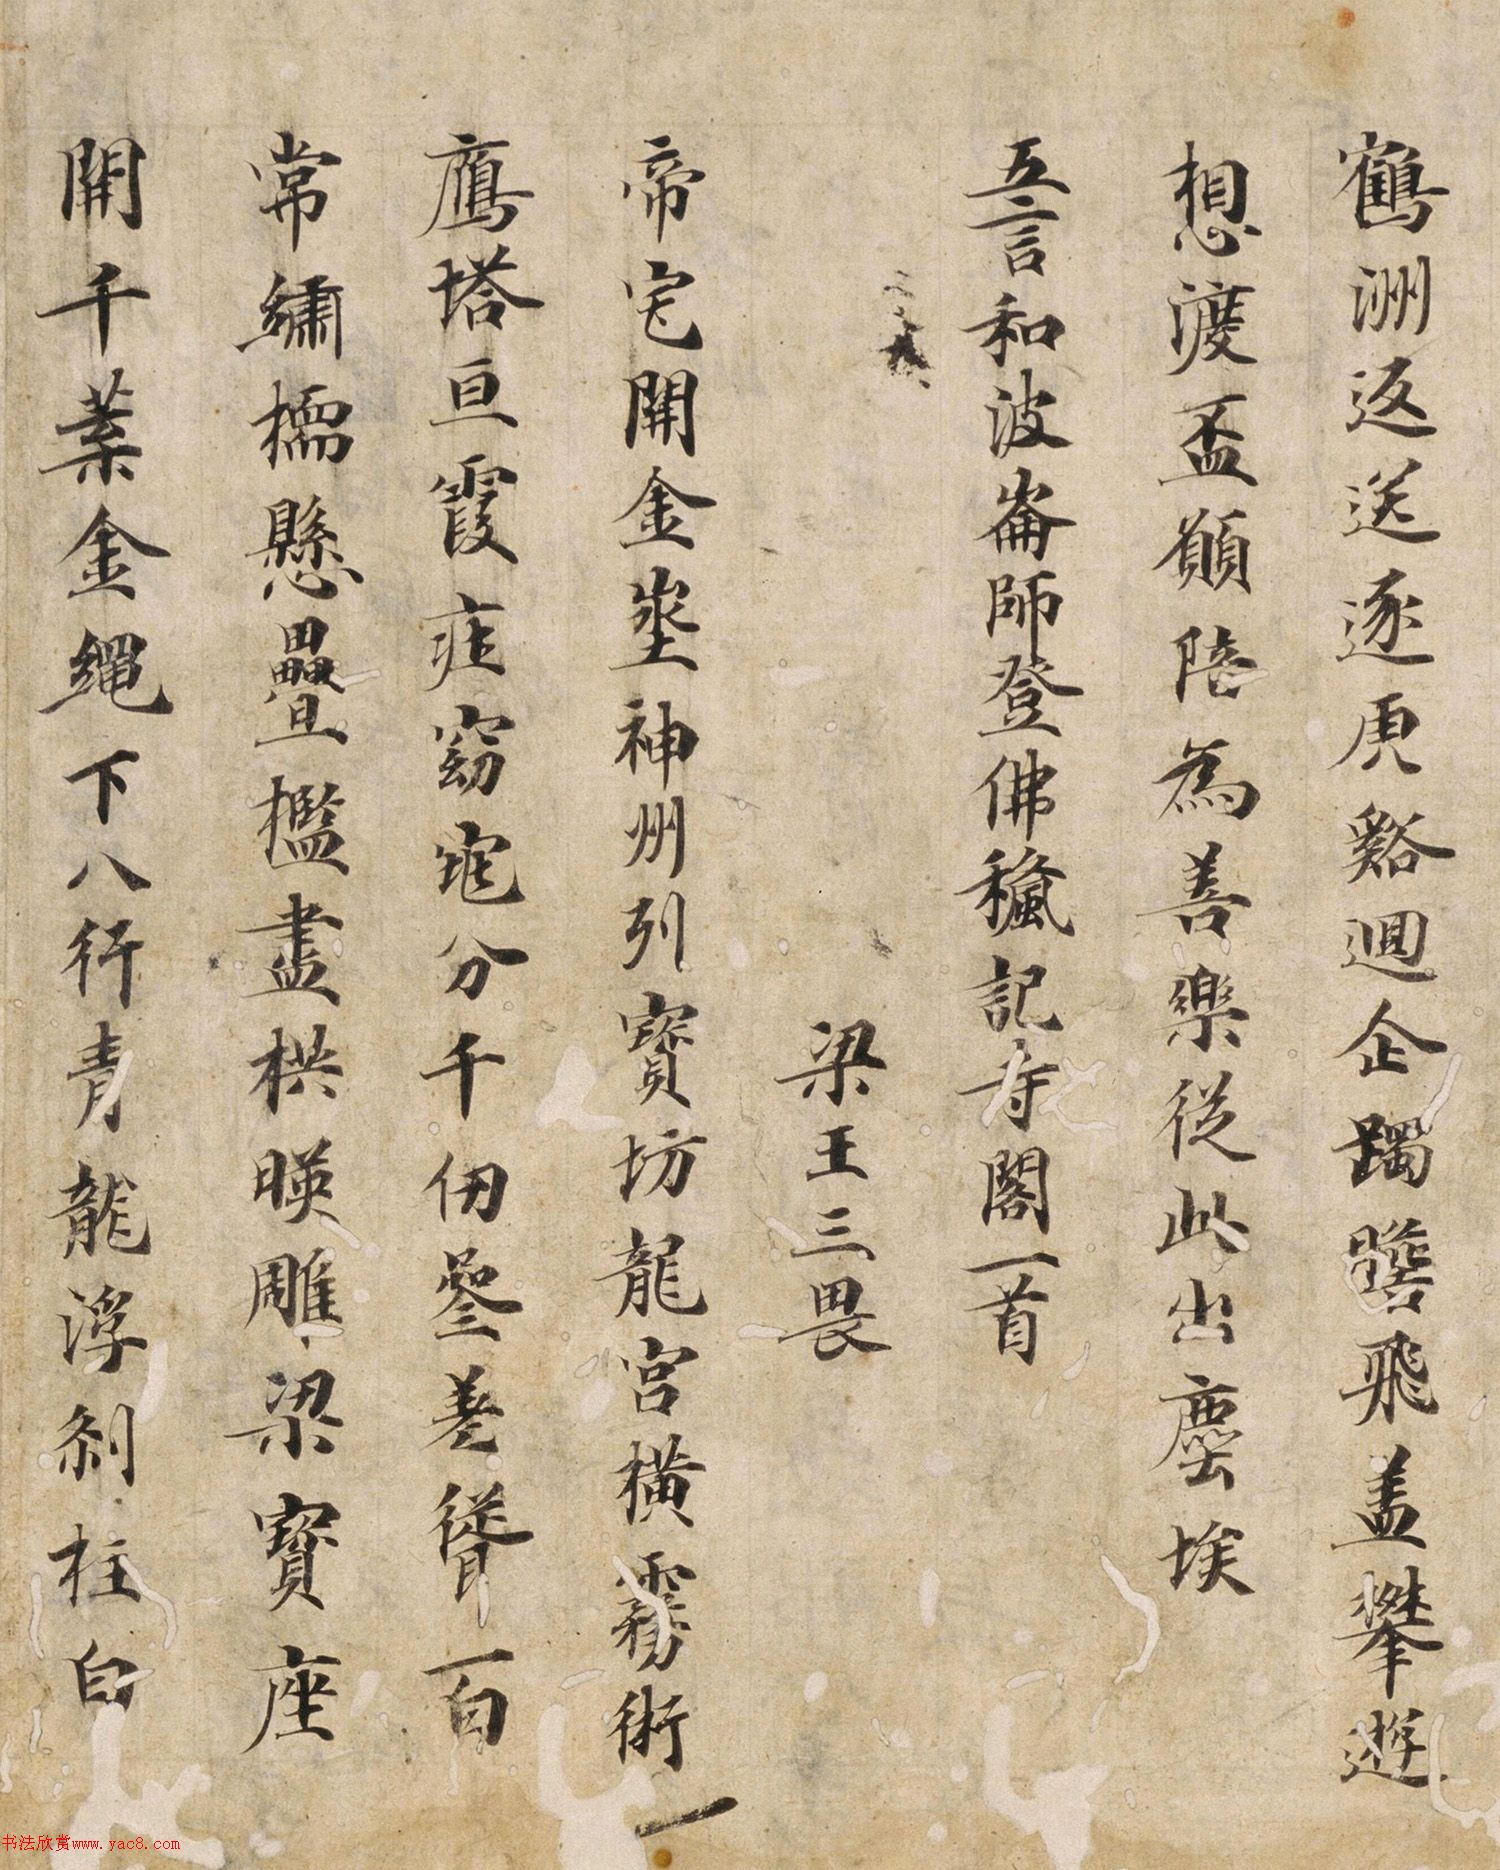 鶴洲返送逐虎谿迴企躅瞻飛盖攀遊
想渡盃願陪為善樂從此出塵埃
五言和波崙師登佛窺記寺閣一首
梁王三畏
帝宅開金地神州列寳坊龍宮橫霧術一
鴈塔亘霞莊窈窕分千仞參差聳百
常繡櫺懸疊檻畫栱暎雕梁寳座
開千葉金繩下八行青龍浮刹柱白
书法欣赏www.yac8.com